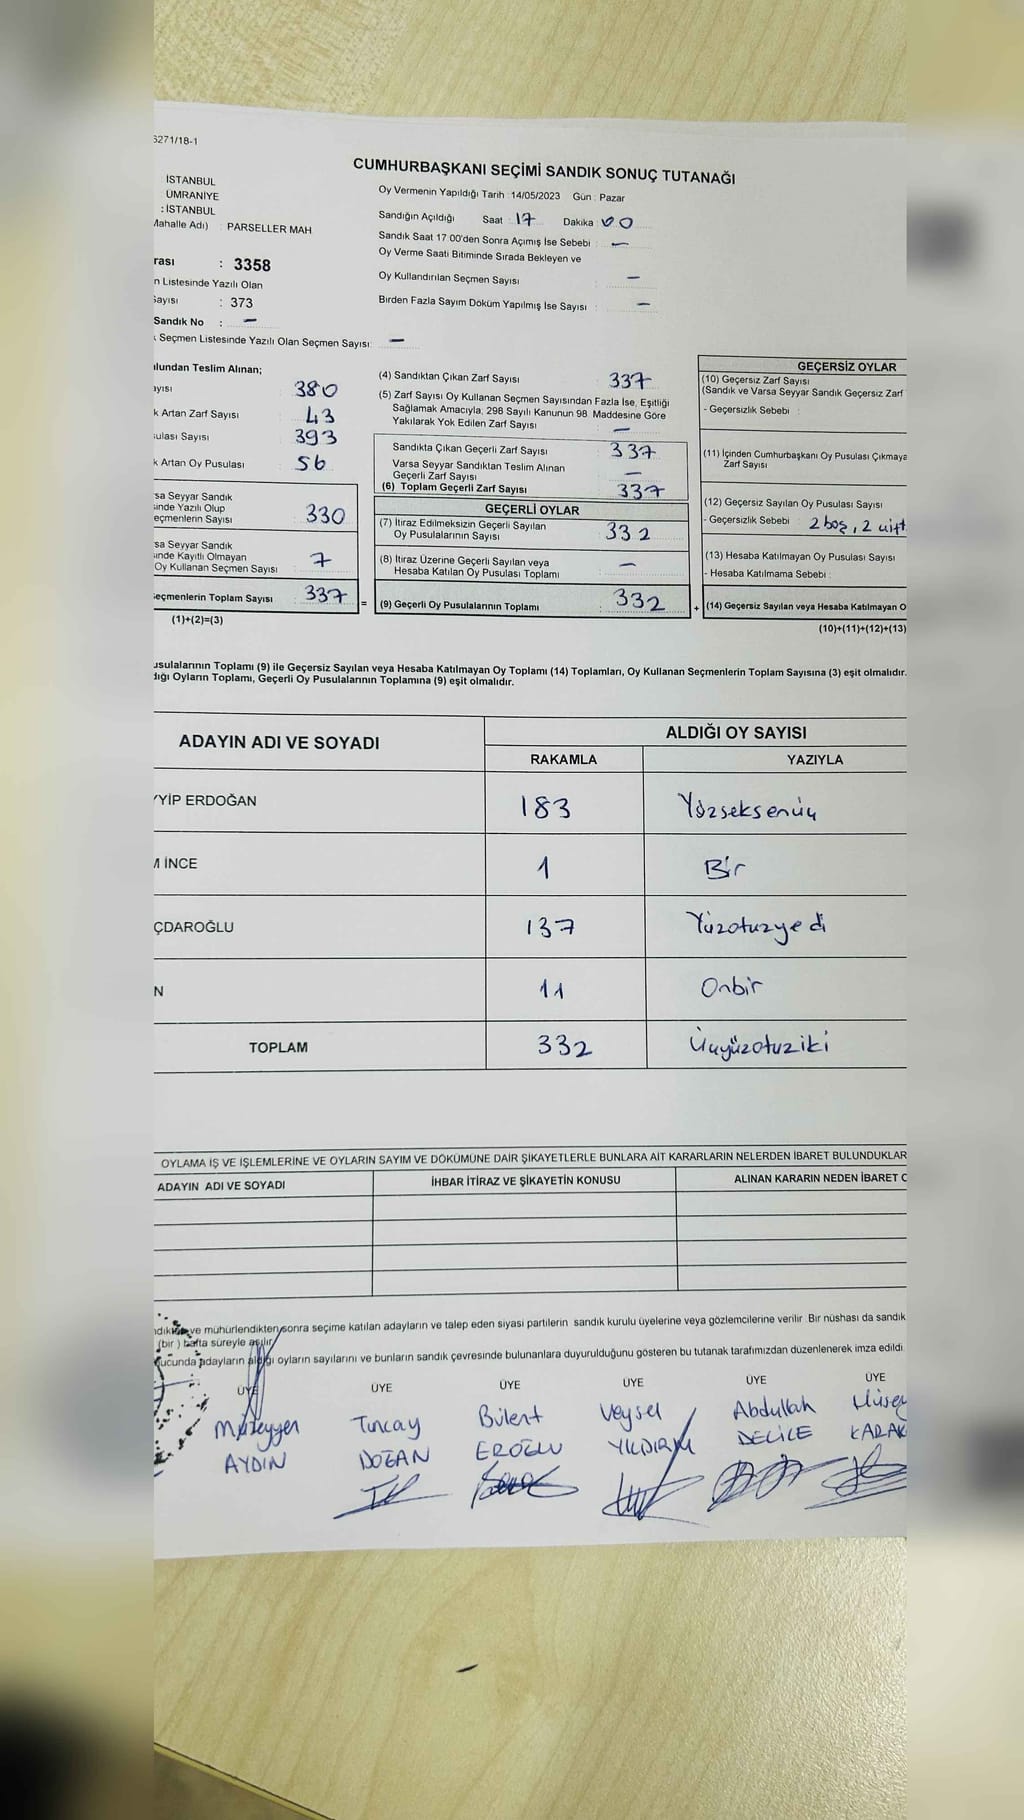 6271/18-1
CUMHURBAŞKANI SEÇİMİ SANDIK SONUÇ TUTANAĞI
İSTANBUL
ÜMRANİYE
: İSTANBUL
Mahalle Adı) : PARSELLER MAH
Oy Vermenin Yapıldığı Tarih : 14/05/2023 Gün : Pazar
Sandığın Açıldığı Saat : 17 Dakika : 00
Sandık Saat 17:00'den Sonra Açılmış İse Sebebi : —
Oy Verme Saati Bitiminde Sırada Bekleyen ve
Oy Kullandırılan Seçmen Sayısı : —
Birden Fazla Sayım Döküm Yapılmış İse Sayısı : —
rası : 3358
n Listesinde Yazılı Olan
Sayısı : 373
Sandık No : —
k Seçmen Listesinde Yazılı Olan Seçmen Sayısı: —
ulundan Teslim Alınan;
ayısı 380
k Artan Zarf Sayısı 43
sulası Sayısı 393
k Artan Oy Pusulası 56
rsa Seyyar Sandık
sinde Yazılı Olup
eçmenlerin Sayısı 330
rsa Seyyar Sandık
sinde Kayıtlı Olmayan
Oy Kullanan Seçmen Sayısı 7
eçmenlerin Toplam Sayısı 337 =
(1)+(2)=(3)
(4) Sandıktan Çıkan Zarf Sayısı 337
(5) Zarf Sayısı Oy Kullanan Seçmen Sayısından Fazla İse, Eşitliği
Sağlamak Amacıyla, 298 Sayılı Kanunun 98. Maddesine Göre
Yakılarak Yok Edilen Zarf Sayısı : —
Sandıkta Çıkan Geçerli Zarf Sayısı 337
Varsa Seyyar Sandıktan Teslim Alınan
Geçerli Zarf Sayısı —
(6) Toplam Geçerli Zarf Sayısı 337
GEÇERLİ OYLAR
(7) İtiraz Edilmeksizin Geçerli Sayılan
Oy Pusulalarının Sayısı 332
(8) İtiraz Üzerine Geçerli Sayılan veya
Hesaba Katılan Oy Pusulası Toplamı —
(9) Geçerli Oy Pusulalarının Toplamı : 332 +
GEÇERSİZ OYLAR
(10) Geçersiz Zarf Sayısı
(Sandık ve Varsa Seyyar Sandık Geçersiz Zarf
- Geçersizlik Sebebi :
(11) İçinden Cumhurbaşkanı Oy Pusulası Çıkmaya
Zarf Sayısı
(12) Geçersiz Sayılan Oy Pusulası Sayısı
- Geçersizlik Sebebi : 2 boş, 2 çift
(13) Hesaba Katılmayan Oy Pusulası Sayısı
- Hesaba Katılmama Sebebi :
(14) Geçersiz Sayılan veya Hesaba Katılmayan O
(10)+(11)+(12)+(13)
usulalarının Toplamı (9) ile Geçersiz Sayılan veya Hesaba Katılmayan Oy Toplamı (14) Toplamları, Oy Kullanan Seçmenlerin Toplam Sayısına (3) eşit olmalıdır.
dığı Oyların Toplamı, Geçerli Oy Pusulalarının Toplamına (9) eşit olmalıdır.
ADAYIN ADI VE SOYADI
ALDIĞI OY SAYISI
RAKAMLA YAZIYLA
YYİP ERDOĞAN 183 Yüzseksenüç
M İNCE 1 Bir
ÇDAROĞLU 137 Yüzotuzyedi
N 11 Onbir
TOPLAM 332 Üçyüzotuziki
OYLAMA İŞ VE İŞLEMLERİNE VE OYLARIN SAYIM VE DÖKÜMÜNE DAİR ŞİKAYETLERLE BUNLARA AİT KARARLARIN NELERDEN İBARET BULUNDUKLAR
ADAYIN ADI VE SOYADI İHBAR İTİRAZ VE ŞİKAYETİN KONUSU ALINAN KARARIN NEDEN İBARET O
ve mühürlendikten sonra seçime katılan adayların ve talep eden siyasi partilerin sandık kurulu üyelerine veya gözlemcilerine verilir. Bir nüshası da sandık
(bir ) hafta süreyle asılır.
ucunda adayların aldığı oyların sayılarını ve bunların sandık çevresinde bulunanlara duyurulduğunu gösteren bu tutanak tarafımızdan düzenlenerek imza edildi.
ÜYE ÜYE ÜYE ÜYE ÜYE ÜYE
Müzeyyen Tuncay Bülent Veysel Abdullah Hüsey
AYDIN DOĞAN EROĞLU YILDIRIM DELİCE KARAK